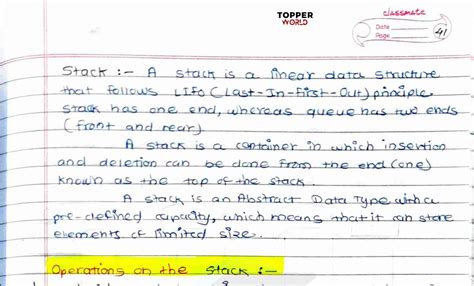 TOPPER
WORLD
classmate
Date
Page 41
Stack :- A stack is a linear data structure
that follows LIFO (Last-In-First-Out) principle
stack has one end, whereas queue has two ends
(front and rear)
A stack is a container in which insertion
and deletion can be done from the end (one)
known as the top of the stack.
A stack is an Abstract Data Type with a
pre-defined capacity, which means that it can store
elements of limited size.
Operations on the stack :-